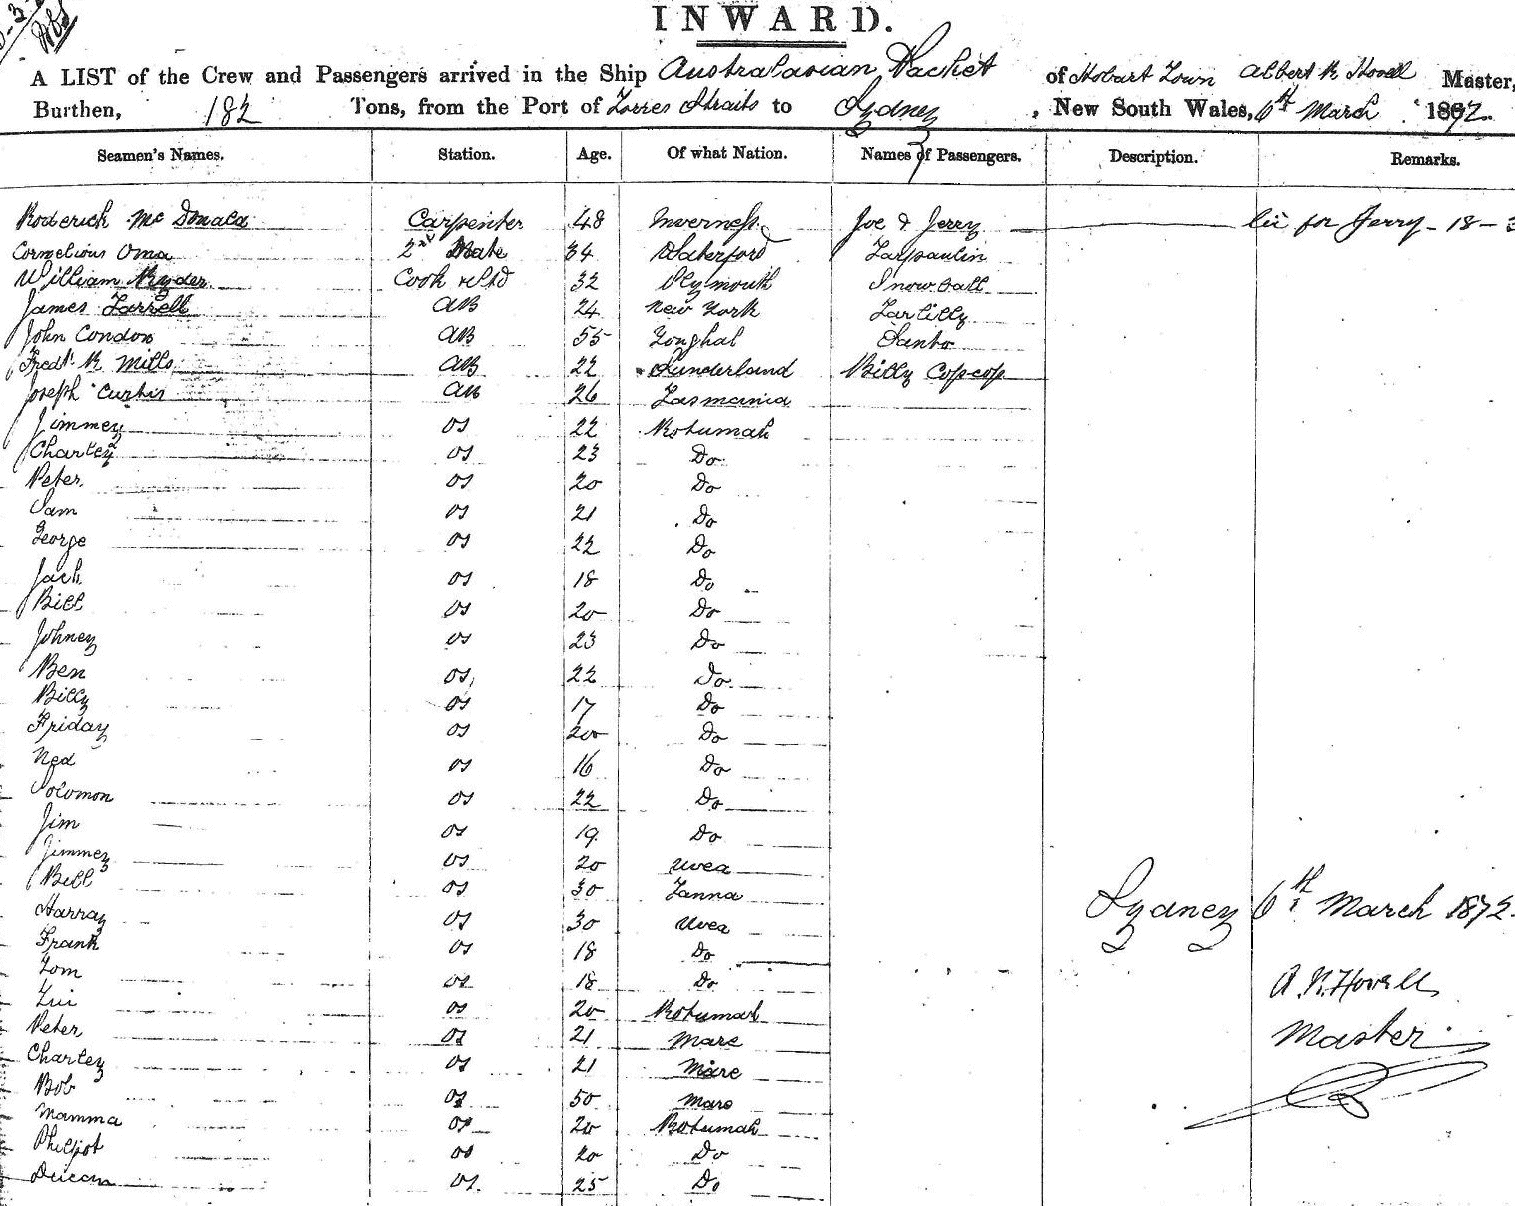 INWARD.
A LIST of the Crew and Passengers arrived in the Ship Australasian Packet of Hobart Town Albert R Hovell Master,
Burthen, 182 Tons, from the Port of Torres Straits to Sydney, New South Wales, 6th March 1872.
Seamen's Names. Station. Age. Of what Nation. Names of Passengers. Description. Remarks.
Roderick McDonald Carpenter 48 Inverness Joe & Jerry lic for Jerry - 18 - 3
Cornelious Oma 2nd Mate 34 Waterford Tarpaulin
William Ryder Cook & Std 32 Plymouth Snowball
James Farrell AB 24 New York Tarlilly
John Condon AB 55 Youghal Santo
Fredk R Mills AB 22 Sunderland Billy Cop-cop
Joseph Curtis AB 26 Tasmania
Jimmey OS 22 Rotumah
Charley OS 23 Do
Peter OS 20 Do
Sam OS 21 Do
George OS 22 Do
Jack OS 18 Do
Bill OS 20 Do
Johney OS 23 Do
Ben OS 22 Do
Billy OS 17 Do
Friday OS 20 Do
Ned OS 16 Do
Solomon OS 22 Do
Jim OS 19 Do
Jimmey OS 20 Uvea
Bill OS 30 Tanna
Harray OS 30 Uvea
Frank OS 18 Do
Tom OS 18 Do
Tui OS 20 Rotumah
Peter OS 21 Mare
Charley OS 21 Mare
Bob OS 50 Mare
Mamma OS 20 Rotumah
Philpot OS 20 Do
Duccan OS. 25 Do
Sydney 6th March 1872.
A. R. Hovell
Master